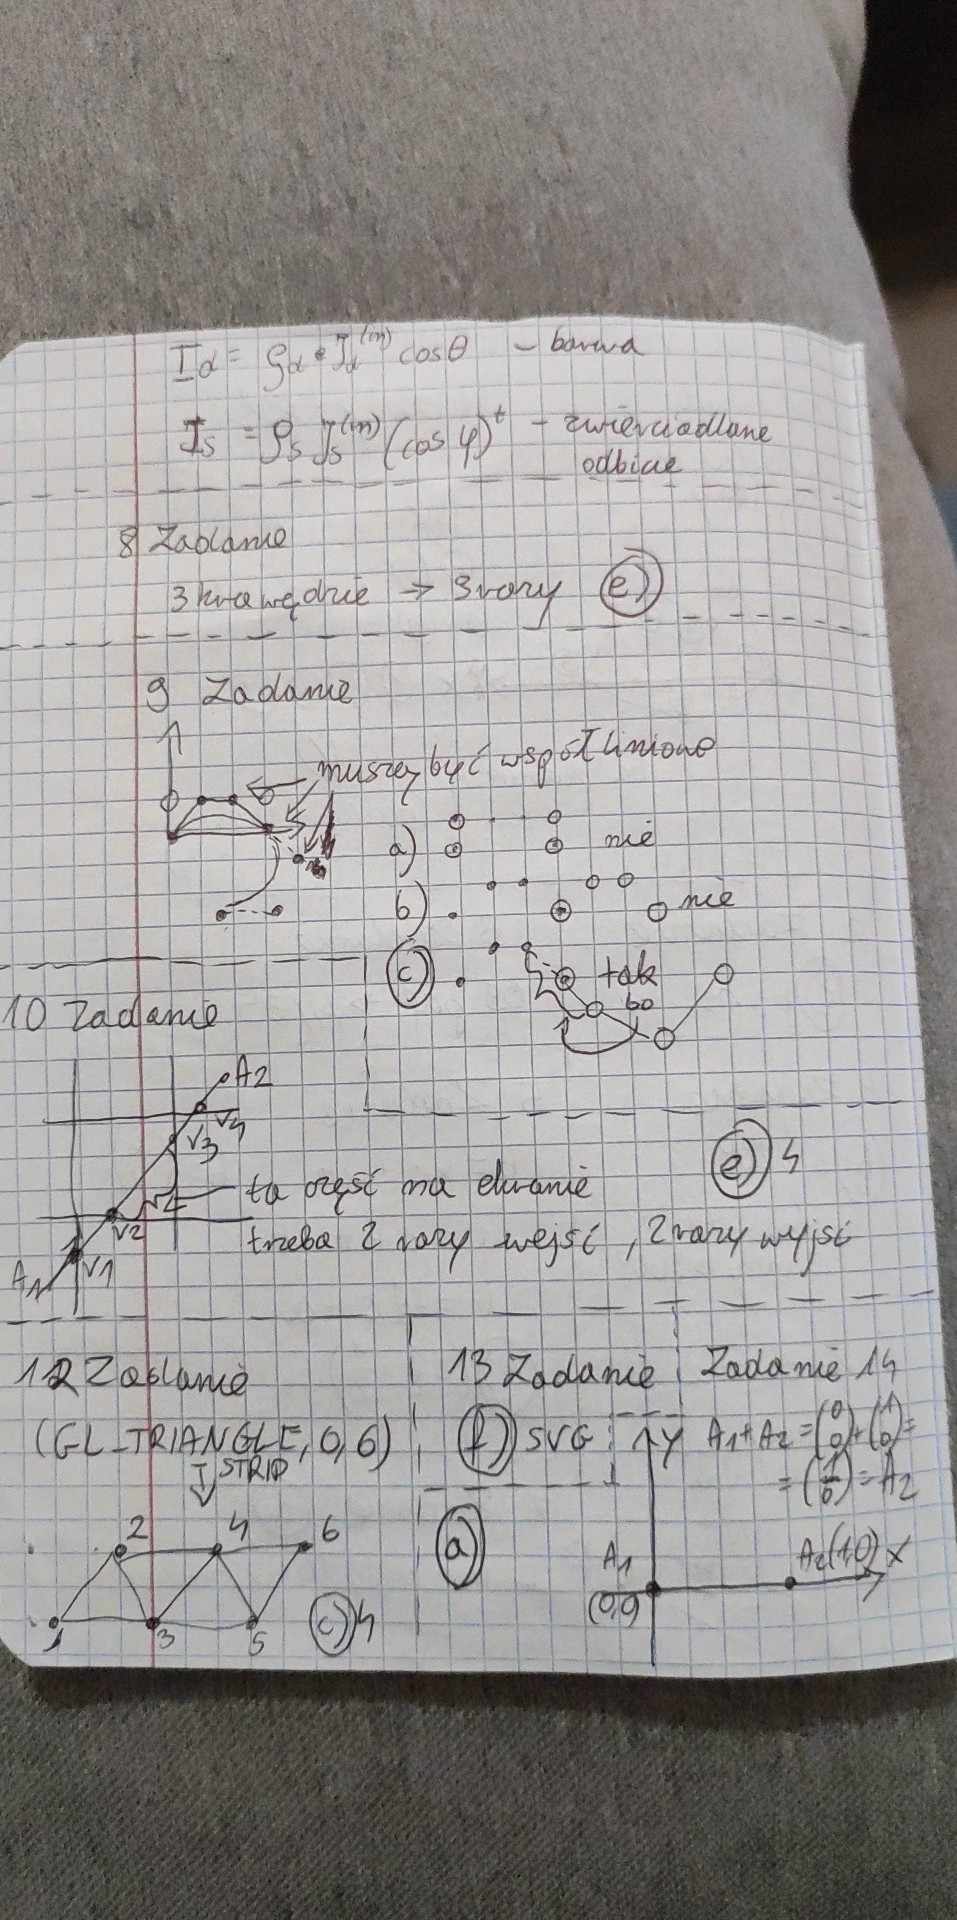 I_d = ρ_d • I_d^(in) cosθ – barwa
I_s = ρ_s I_s^(in) (cos φ)^t – zwierciadlane
odbicie
8 Zadanie
3 krawędzie → 3 razy e)
9 Zadanie
muszą być współliniowe
a) nie
b) nie
c) tak
bo
10 Zadanie
A2
V4
V3
e) 4
ta część na ekranie
V2
trzeba 2 razy wejść, 2 razy wyjść
A1 V1
12 Zadanie
(GL_TRIANGLE, 0, 6)
STRIP
2 4 6
1 3 5
c) 4
13 Zadanie
f) SVG
a)
Zadanie 14
y A1 + A2 = (0 0) + (1 0) =
= (1 0) = A2
A1 A2(1,0) x
(0,0)